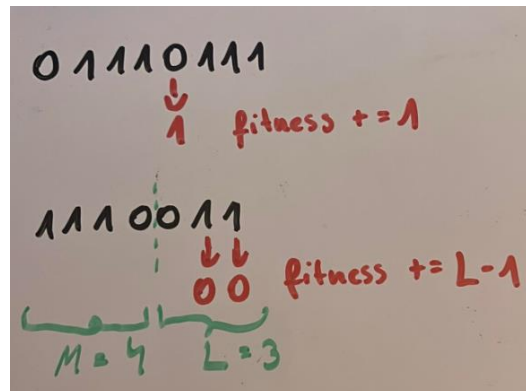 011110111
1 fitness += 1
1110011
00 fitness += L-1
M = 4 L = 3